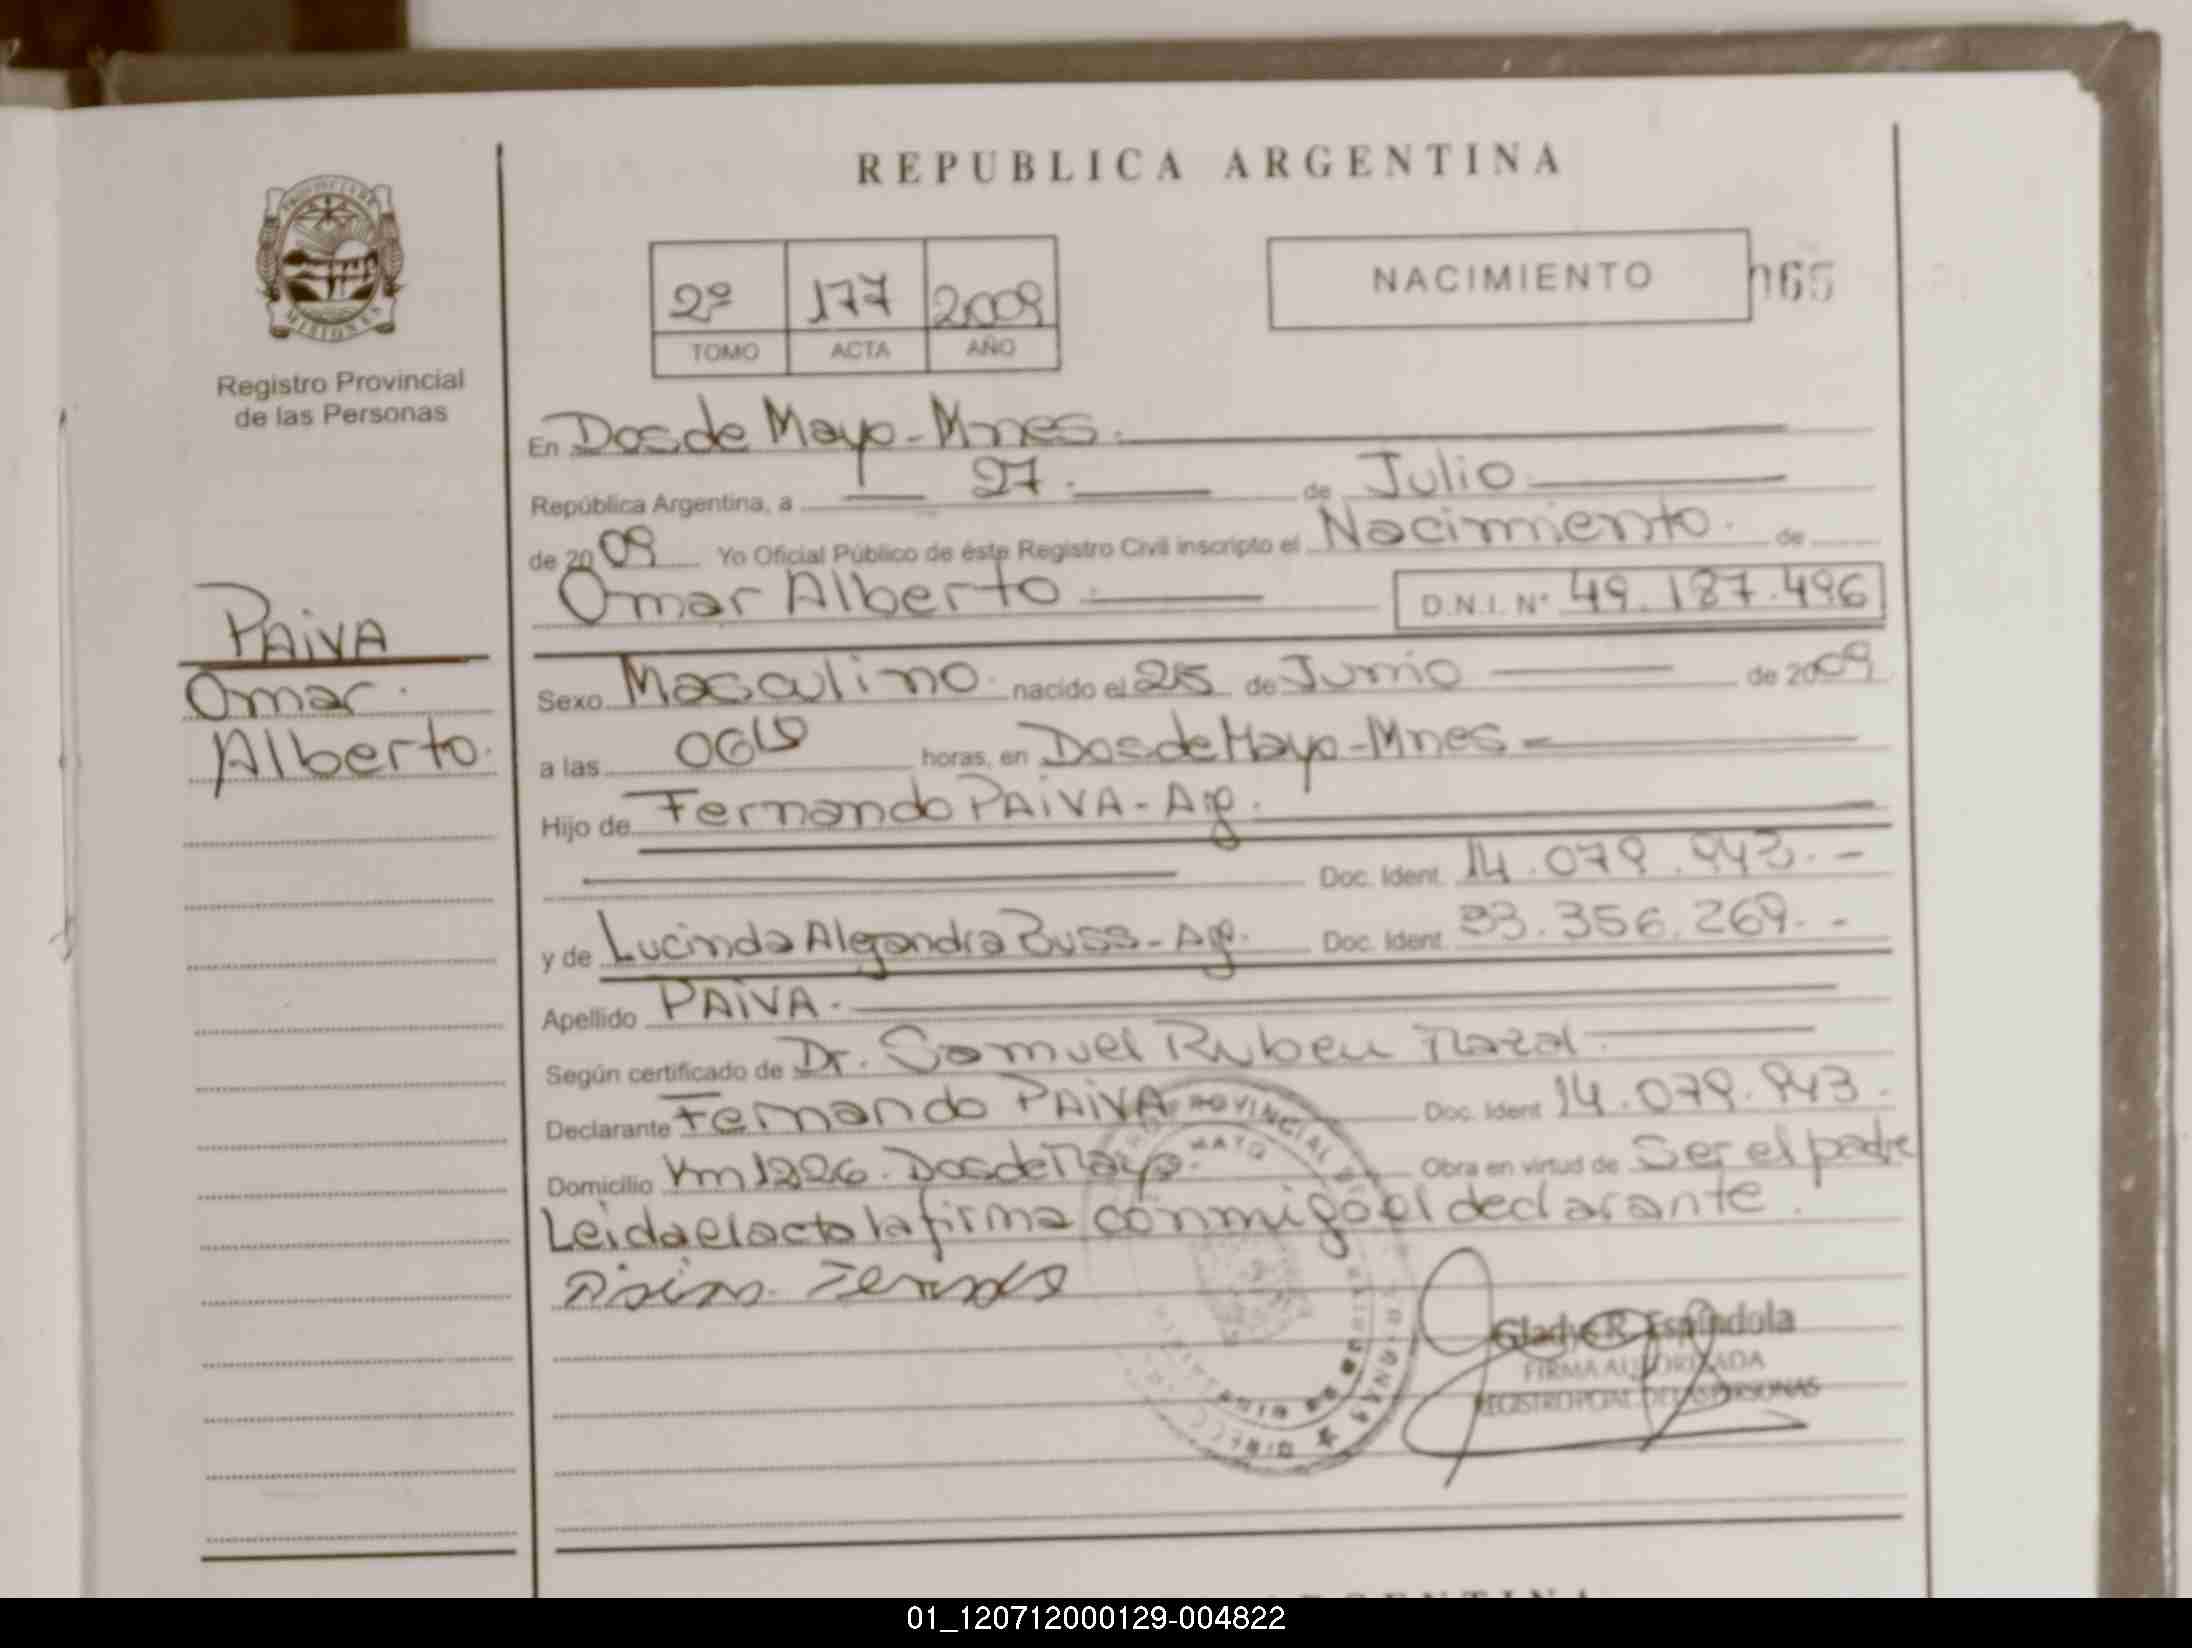 REPUBLICA ARGENTINA
NACIMIENTO
065
2º 177 2009
TOMO ACTA AÑO
MISIONES
Registro Provincial
de las Personas
PAIVA
Omar.
Alberto.
En Dos de Mayo - Mnes.
República Argentina, a 27. de Julio
de 2009 Yo Oficial Público de éste Registro Civil inscripto el Nacimiento. de
Omar Alberto. D.N.I. Nº 49.187.496
Sexo Masculino. nacido el 25 de Junio de 2009
a las horas, en Dos de Mayo - Mnes
Hijo de Fernando PAIVA - Arg.
Doc. Ident. 14.079.943. -
y de Lucinda Alejandra Buss - Arg. Doc. Ident. 33.356.269. -
Apellido PAIVA.
Según certificado de Dr. Samuel Ruben
Declarante Fernando PAIVA Doc. Ident 14.079.943.
Domicilio Km 1226. Dos de Mayo. Obra en virtud de Ser el padre
Leida el acta la firma conmigo el declarante.
Gladys R. Espíndola
FIRMA AUTORIZADA
REGISTRO PCIAL. DE LAS PERSONAS
01_120712000129-004822